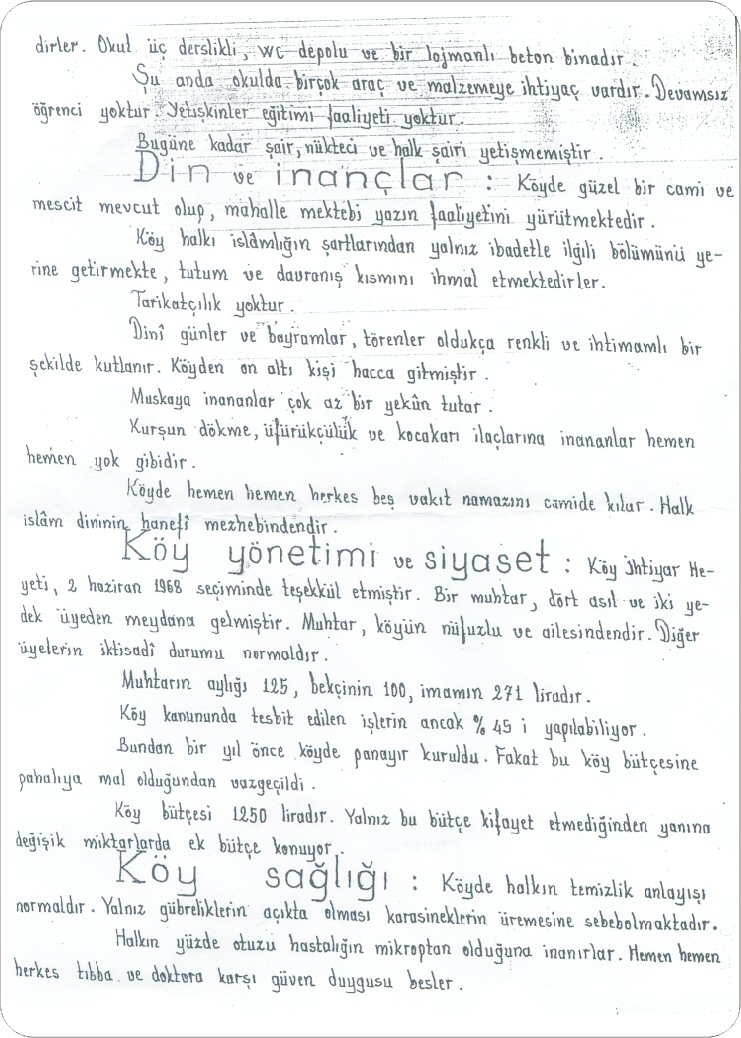 dirler. Okul üç derslikli, WC depolu ve bir lojmanlı beton binadır.
Şu anda okulda birçok araç ve malzemeye ihtiyaç vardır. Devamsız
öğrenci yoktur. Yetişkinler eğitimi faaliyeti yoktur.
Bugüne kadar şair, nükteci ve halk şairi yetişmemiştir.
Din ve inançlar : Köyde güzel bir cami ve
mescit mevcut olup, mahalle mektebi yazın faaliyetini yürütmektedir.
Köy halkı islâmlığın şartlarından yalnız ibadetle ilgili bölümünü ye-
rine getirmekte, tutum ve davranış kısmını ihmal etmektedirler.
Tarikatçılık yoktur.
Dinî günler ve bayramlar, törenler oldukça renkli ve ihtimamlı bir
şekilde kutlanır. Köyden on altı kişi hacca gitmiştir.
Muskaya inananlar çok az bir yekûn tutar.
Kurşun dökme, üfürükçülük ve kocakarı ilaçlarına inananlar hemen
hemen yok gibidir.
Köyde hemen hemen herkes beş vakit namazını camide kılur. Halk
islâm dininin hanefî mezhebindendir.
Köy yönetimi ve siyaset : Köy İhtiyar He-
yeti, 2 haziran 1968 seçiminde teşekkül etmiştir. Bir muhtar, dört asıl ve iki ye-
dek üyeden meydana gelmiştir. Muhtar, köyün nüfuzlu ve ailesindendir. Diğer
üyelerin iktisadî durumu normaldır.
Muhtarın aylığı 125, bekçinin 100, imamın 271 liradır.
Köy kanununda tesbit edilen işlerin ancak % 45 i yapılabiliyor.
Bundan bir yıl önce köyde panayır kuruldu. Fakat bu köy bütçesine
pahalıya mal olduğundan vazgeçildi.
Köy bütçesi 1250 liradır. Yalnız bu bütçe kifayet etmediğinden yanına
değişik miktarlarda ek bütçe konuyor.
Köy sağlığı : Köyde halkın temizlik anlayışı
normaldır. Yalnız gübreliklerin açıkta olması karasineklerin üremesine sebebolmaktadır.
Halkın yüzde otuzu hastalığın mikroptan olduğuna inanırlar. Hemen hemen
herkes tıbba ve doktora karşı güven duygusu besler.